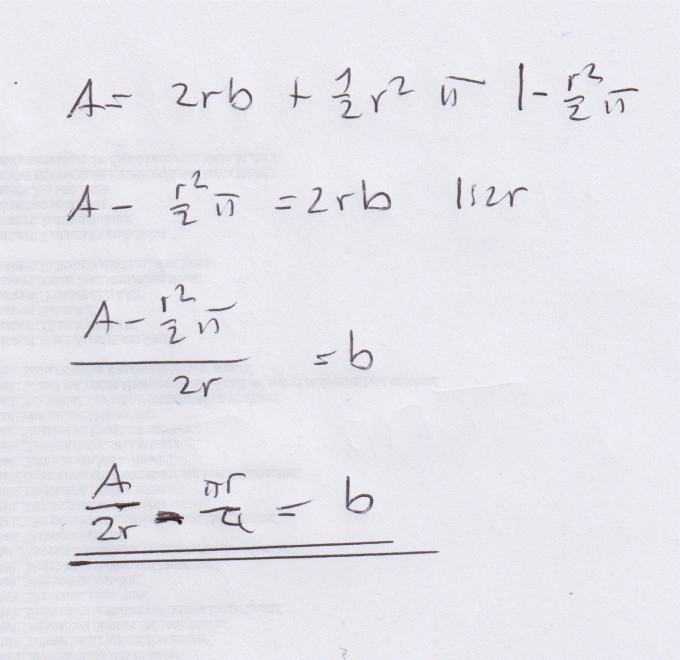 A = 2rb + 1/2 r² π |- r²/2 π
A - r²/2 π = 2rb |:2r
(A - r²/2 π)/2r = b
A/2r - πr/4 = b